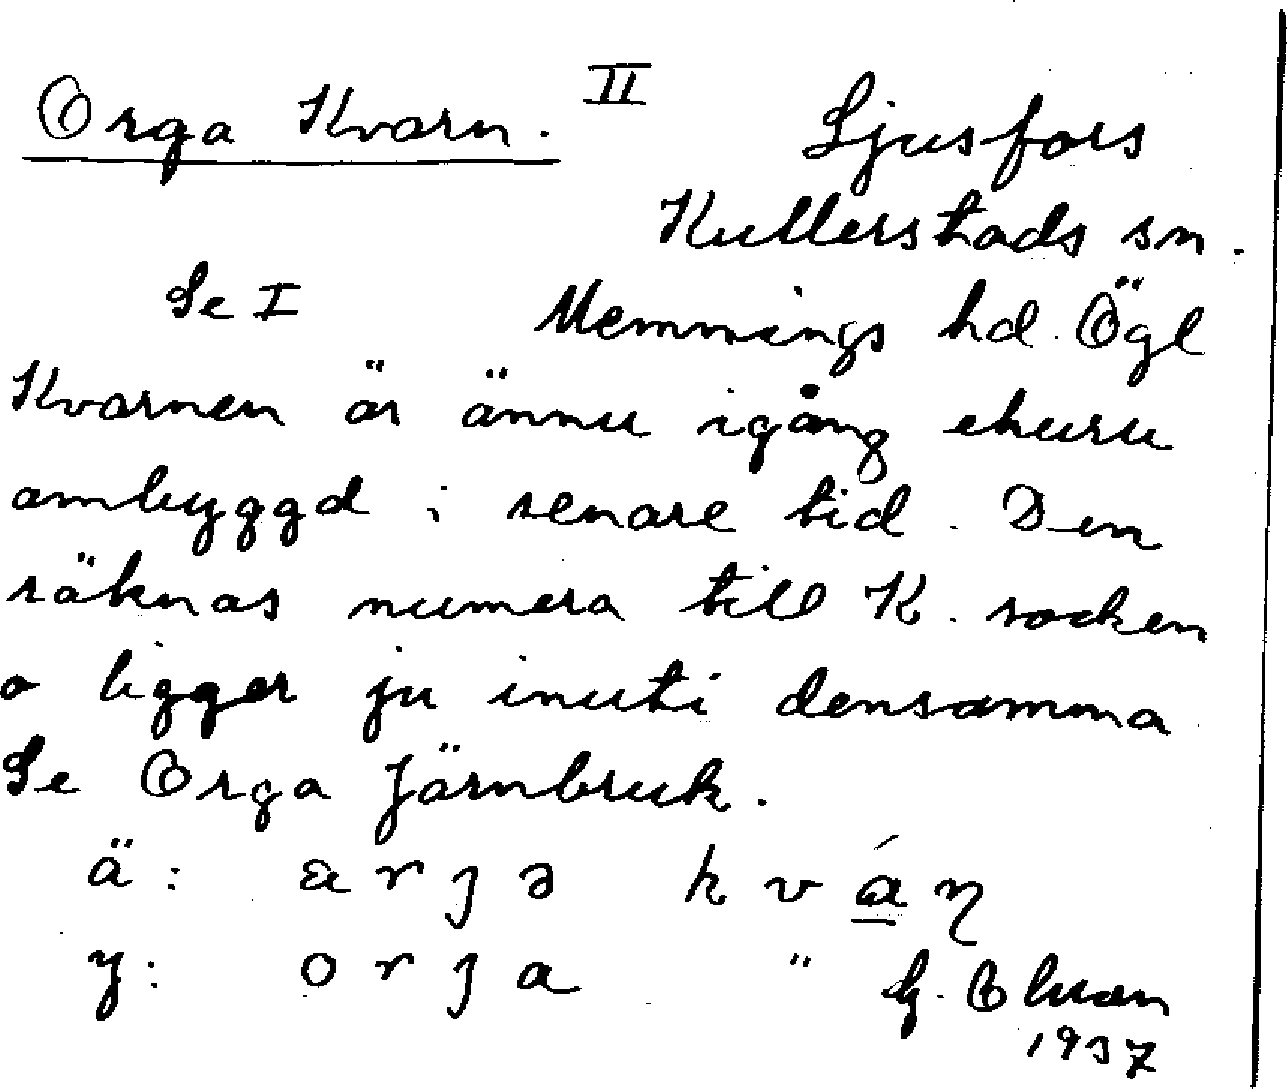 Orga Kvarn. II
Ljusfors
Kullerstads sn.
Se I Memmings hd. Ögl
Kvarnen är ännu igång ehuru
ombyggd i senare tid. Den
räknas numera till K. socken
o ligger ju inuti densamma
Se Orga Järnbruk.
ä: arjə kváɳ
y: orja " G.
1937